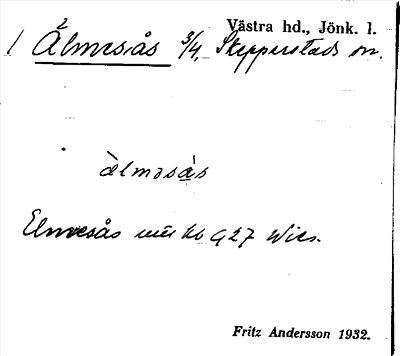 Västra hd., Jönk. l.
1 Älmesås 3/4, Skepperstads sn.
älmasàs
Elmesås
Fritz Andersson 1932.